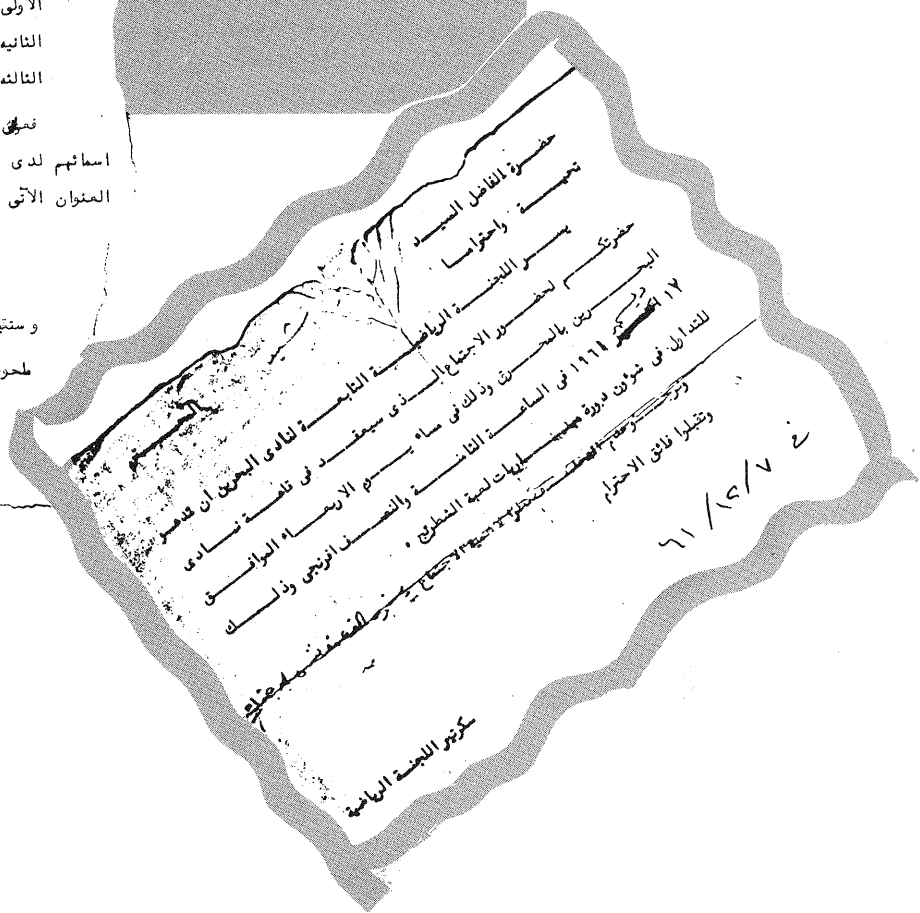 الاولى
الثانيه
الثالثه
اسمائهم لدى
العنوان الآتى
حضرة الفاضل السيـــد
المحـــترم
تحيـــة واحترامـــا
يســـر اللجنـــة الرياضيـــة التابعـــة لنادى البحرين ان تدعـو
حضرتكـــم لحضـــور الاجتماع الـــذى سيعقـــد فى قاعـــة نـــادى
البحـــرين بالمحـــرق وذلك فى مساء يـــوم الاربعـــاء الموافـــق
١٢ ديسمبر ١٩٦١ فى الساعـــة الثامنـــة والنصـــف افرنجى وذلـــك
للتداول فى شؤون دورة مبـــاريات لعبة الشطرنج .
وتقبلوا فائق الاحترام
سكرتير اللجنـــة الرياضية
فى ٦١/١٢/٧